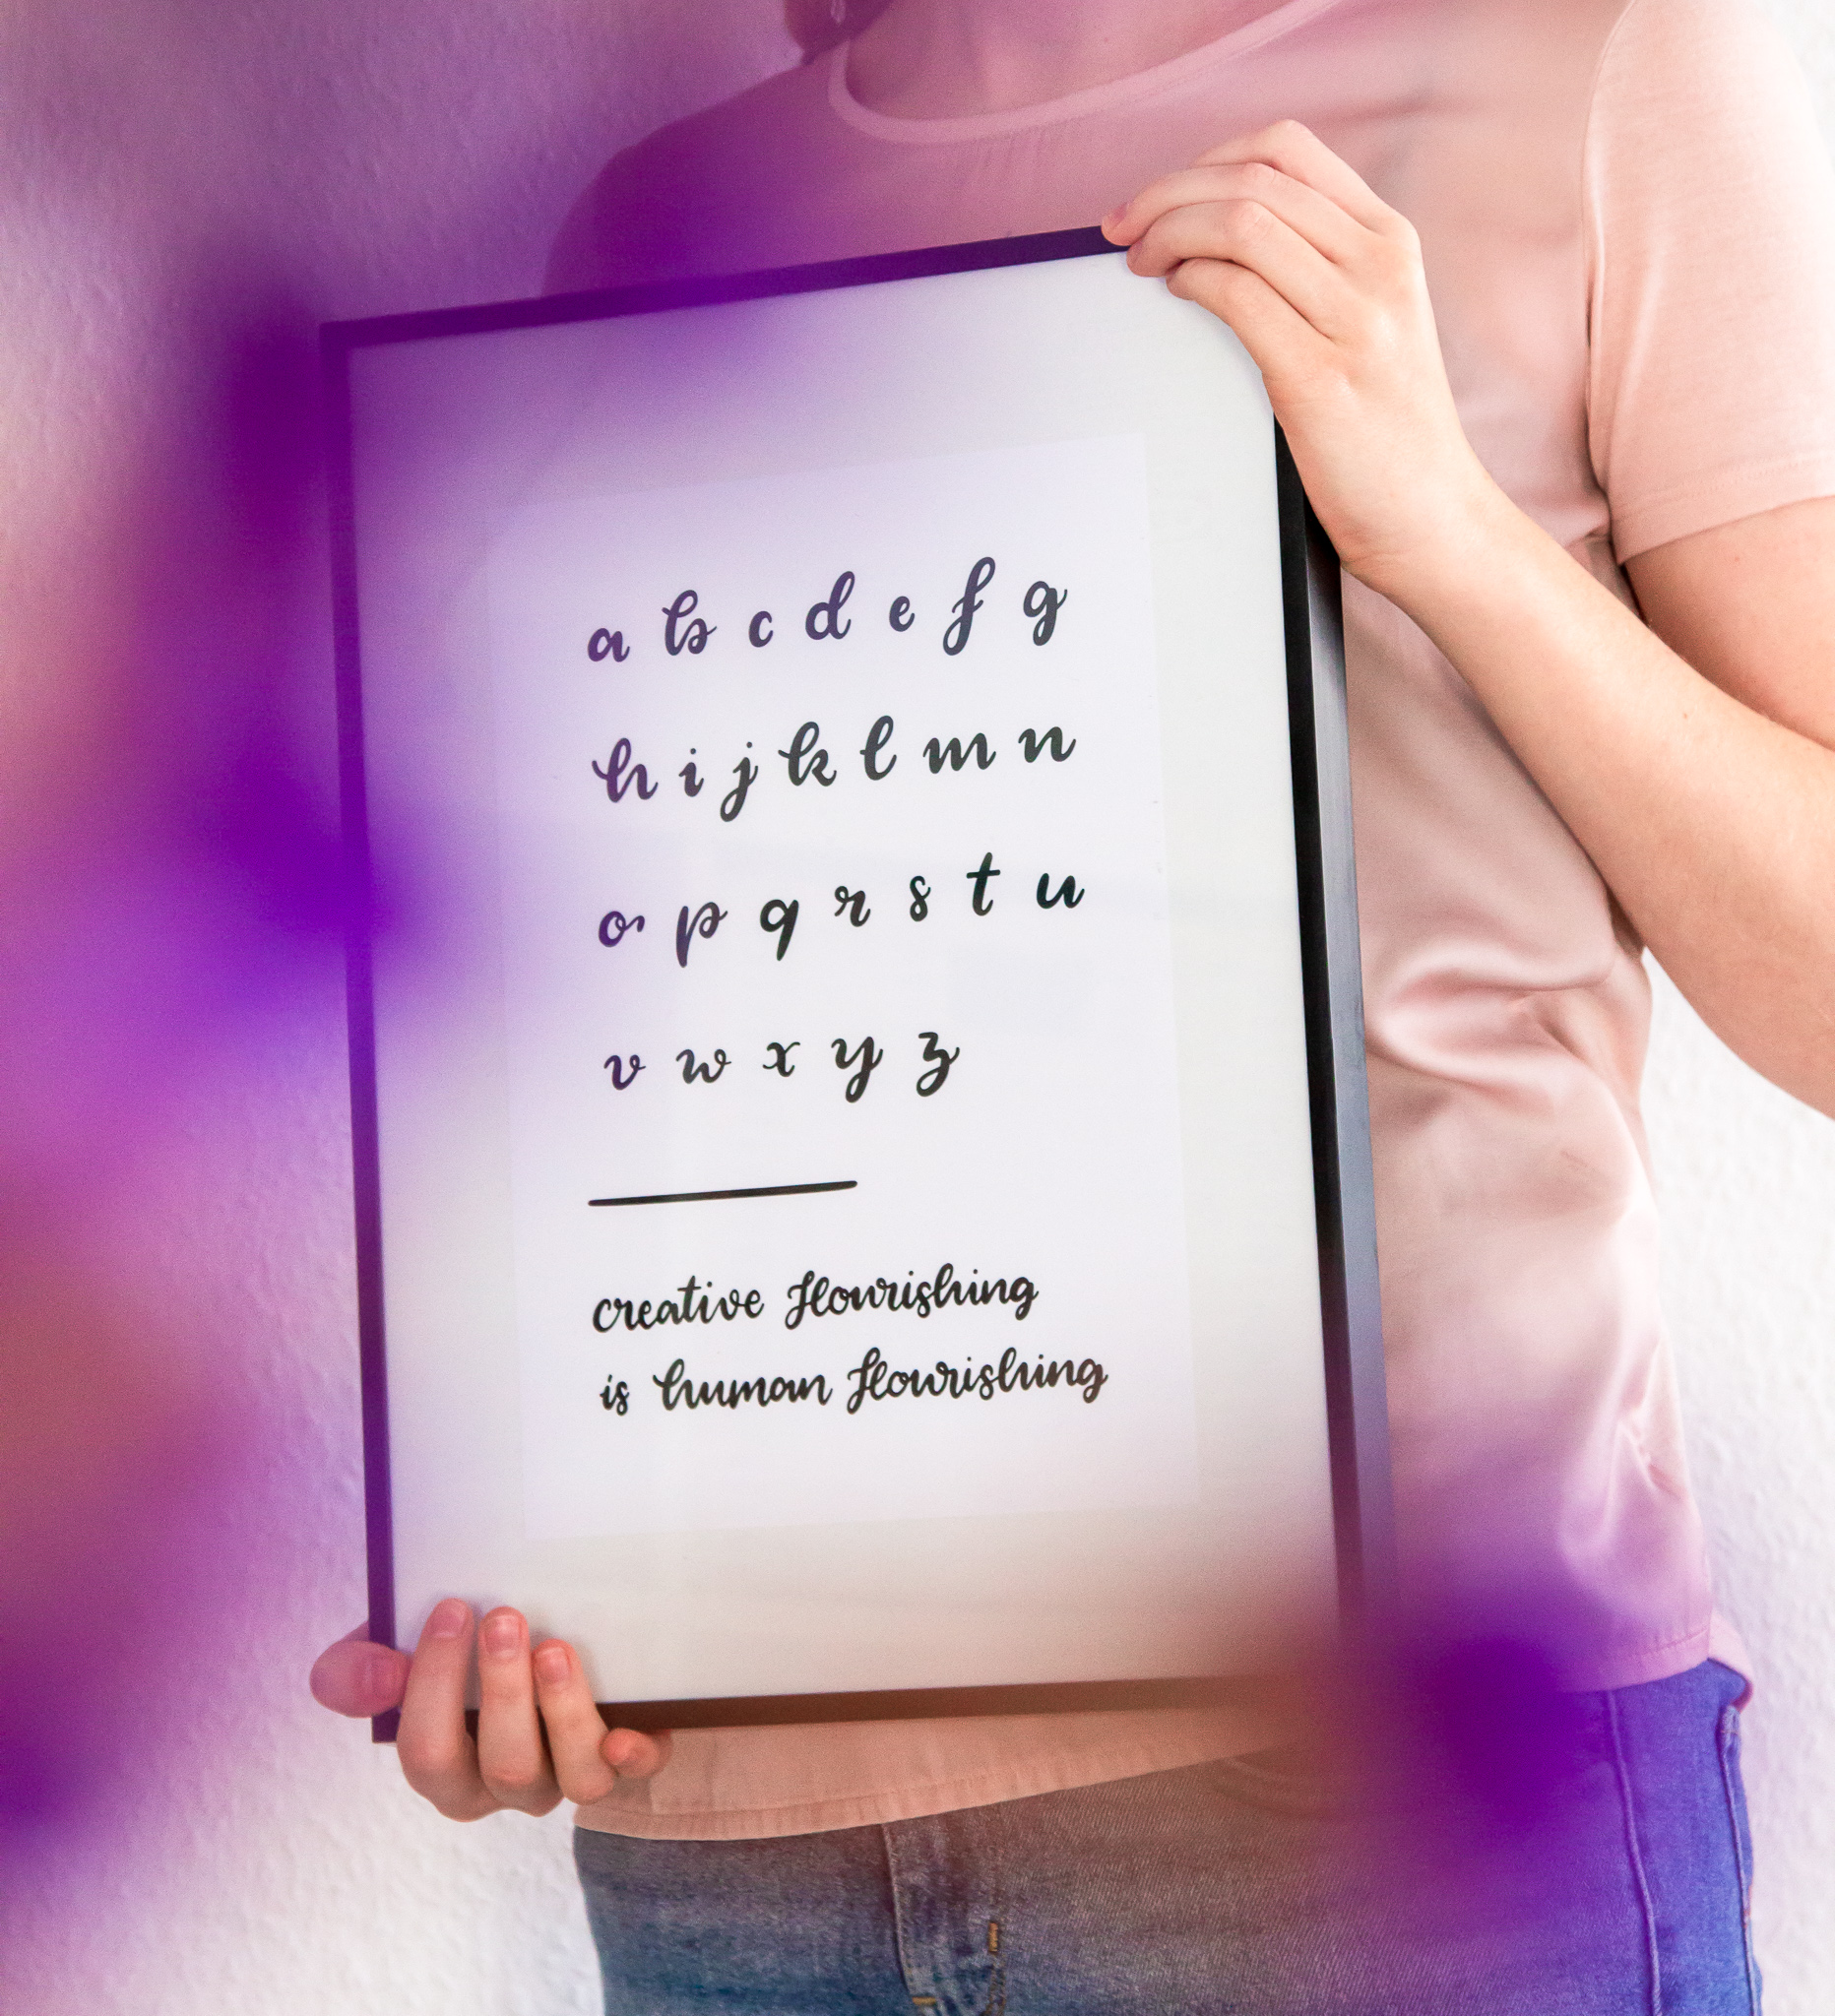 a b c d e f g
h i j k l m n
o p q r s t u
v w x y z
creative flourishing
is human flourishing